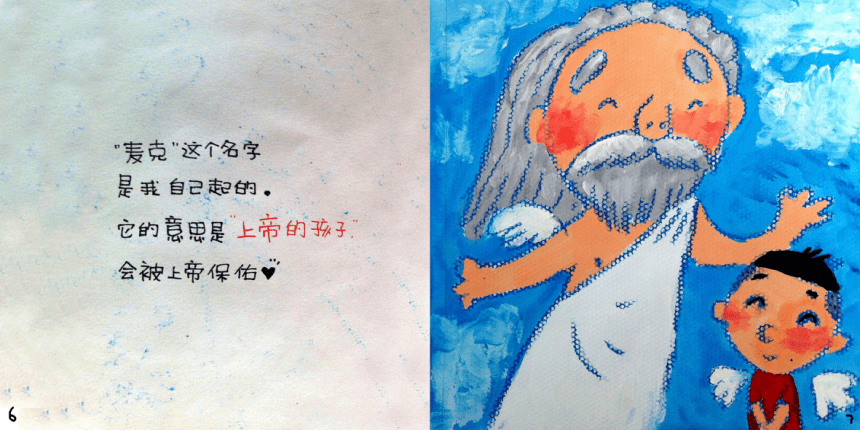 "麦克"这个名字
是我自己起的。
它的意思是"上帝的孩子"
会被上帝保佑♥
6
7